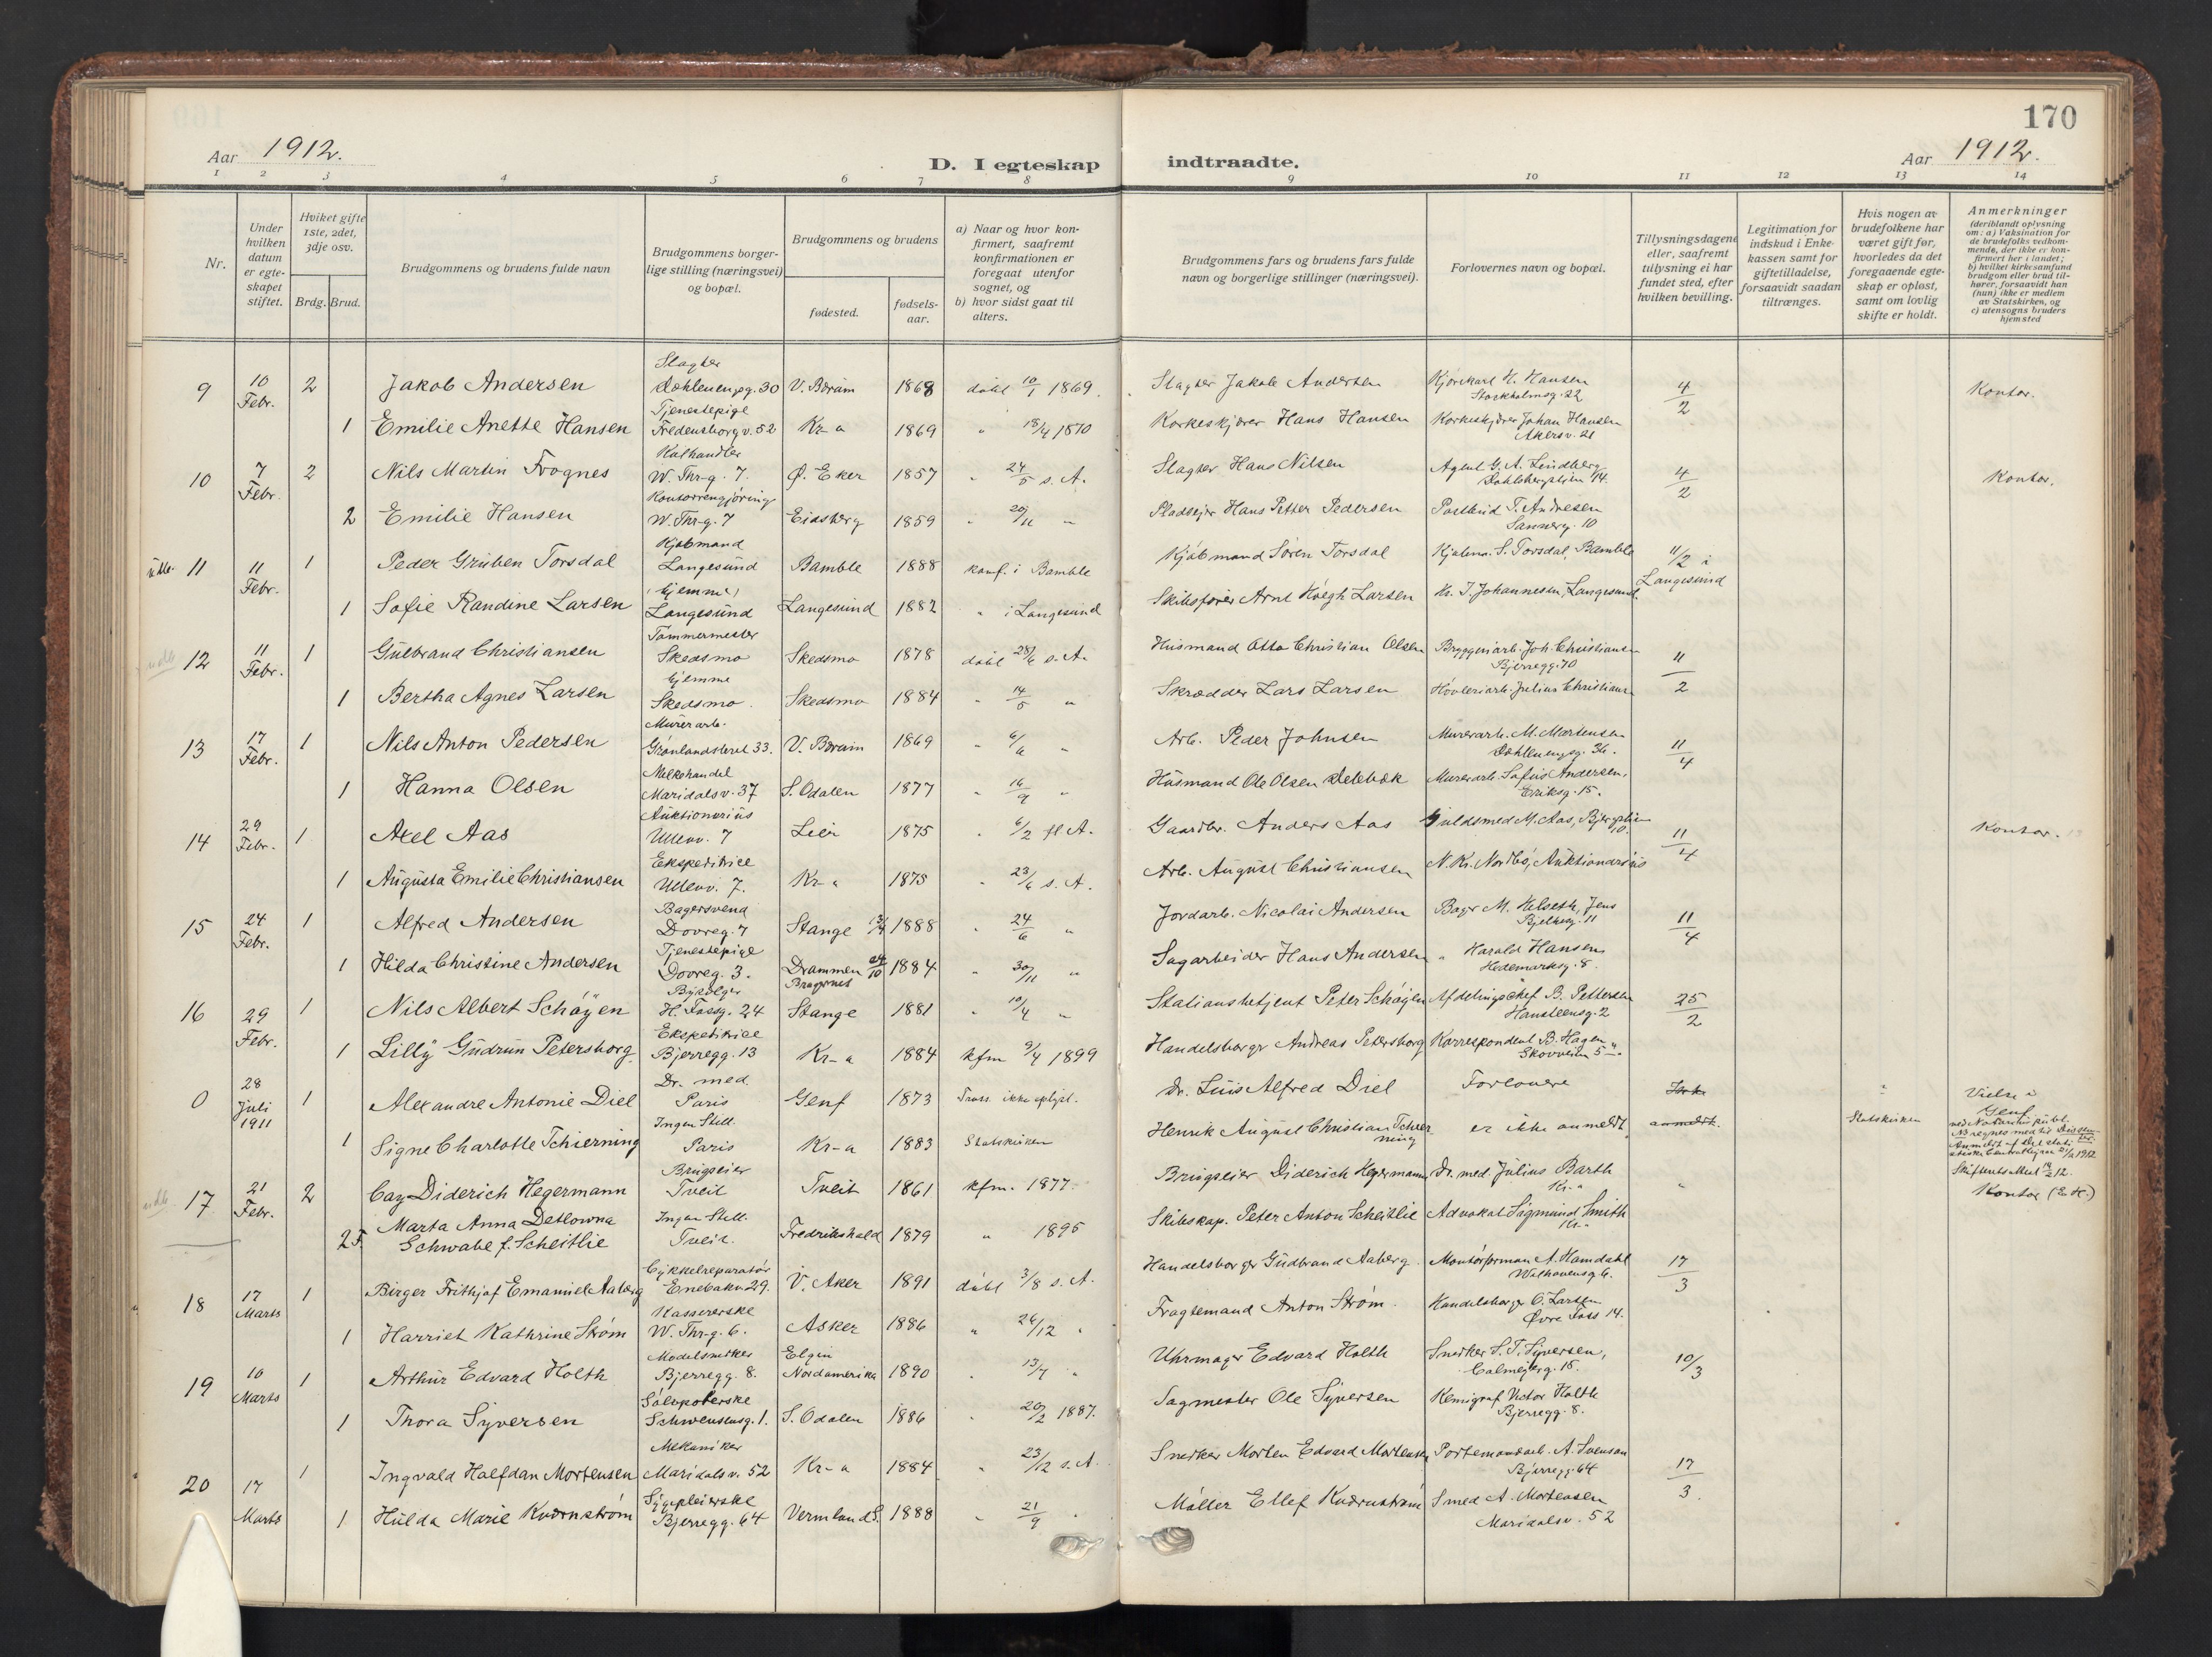 170
Aar 1912.
D. I egteskap indtraadte.
Aar 1912.
1 2 3 4 5 6 7 8 9 10 11 12 13 14
Nr.
Under hvilken datum er egteskapet stiftet.
Hviket gifte 1ste, 2det, 3dje osv.
Brdg. Brud.
Brudgommens og brudens fulde navn
Brudgommens borgerlige stilling (næringsvei) og bopæl.
Brudgommens og brudens
fødested.
fødselsaar.
a) Naar og hvor konfirmert, saafremt konfirmationen er foregaat utenfor sognet, og
b) hvor sidst gaat til alters.
Brudgommens fars og brudens fars fulde navn og borgerlige stillinger (næringsvei).
Forlovernes navn og bopæl.
Tillysningsdagene eller, saafremt tillysning ei har fundet sted, efter hvilken bevilling.
Legitimation for indskud i Enkekassen samt for giftetilladelse, forsaavidt saadan tiltrænges.
Hvis nogen av brudefolkene har været gift før, hvorledes da det foregaaende egteskap er opløst, samt om lovlig skifte er holdt.
Anmerkninger (deriblandt oplysning om: a) Vaksination for de brudefolks vedkommende, der ikke er konfirmert her i landet; b) hvilket kirkesamfund brudgom eller brud tilhører, forsaavidt han (hun) ikke er medlem av Statskirken, og c) utensogns bruders hjemsted
9 10 Febr. 2 Jakob Andersen Slagter Døhlenengsg. 30 V. Bærum 1868 døbt 10/1 1869. Slagter Jakob Andersen Kjørekarl H. Hansen Stockholmsg. 22 4/2 Kontor.
1 Emilie Anette Hansen Tjenestepige Fredensborgv. 52 Kr-a 1869 " 18/4 1870 Korkeskjærer Hans Hansen Korkeskjærer Johan Hansen Akersv. 21
10 7 Febr. 2 Nils Martin Frognes Kulhandler W. Thr-g. 7. Ø. Eker 1857 " 24/5 s. A. Slagter Hans Nilsen Agent G. A. Lindberg Dahlsbergstien 14. 4/2 Kontor.
2 Emilie Hansen Kontorrengjøring W. Thr-g. 7 Eidsberg 1859 " 20/11 " Pladseier Hans Petter Pedersen Postbud T. Andresen Sannerg. 10
11 11 Febr. 1 Peder Gruben Torsdal Kjøbmand Langesund Bamble 1888 konf. i Bamble Kjøbmand Søren Torsdal Kjøbm. S. Torsdal, Bamble 11/2 i Langesund
1 Sofie Randine Larsen Hjemme Langesund Langesund 1882 " i Langesund Skibsfører Arnt Høegh Larsen K. J. Johannesen, Langesund.
12 11 Febr. 1 Gulbrand Christiansen Tømmermester Skedsmo Skedsmo 1878 døbt 28/6 s. A. Husmand Otto Christian Olsen Bryggeriarb. Joh. Christiansen Bjerregg. 70 11/2
1 Bertha Agnes Larsen Hjemme Skedsmo. Skedsmo 1884 " 14/5 " Skrædder Lars Larsen Høvleriarb. Julius Christiansen
13 17 Febr. 1 Nils Anton Pedersen Murerarb. Grønlandsleret 33. V. Bærum 1869 " 6/6 " Arb. Peder Johnsen Murerarb. M. Martensen Døhlenengsg. 36. 11/4
1 Hanna Olsen Melkehandel Maridalsv. 37 S. Odalen 1877 " 16/9 " Husmand Ole Olsen Murerarb. Sofus Andersen, Eriksg. 15.
14 29 Febr. 1 Axel Aas Auktionarius Ullevv. 7 Lier 1875 " 6/2 fl A. Gaardbr. Anders Aas Guldsmed M. Aas, 11/4 Kontor.
1 Augusta Emilie Christiansen Ekspeditrice Ullevv. 7. Kr-a 1875 " 23/6 s. A. Arb. August Christiansen N. Kr. Nordbø, Auktionarius
15 24 Febr. 1 Alfred Andersen Bagersvend Dovreg. 7 Stange 13/4 1888 " 24/6 " Jordarb. Nicolai Andersen Bager M. Helseth, Jens Bjelkesg. 11 11/4
1 Hilda Christine Andersen Tjenestepige Dovreg. 3. Drammen Bragernes 1884 " 30/11 " Sagarbeider Hans Andersen " Harald Hansen Hedemarksg. 8.
16 29 Febr. 1 Nils Albert Schøyen H. Fossg. 24 Stange 1881 " 10/4 " Stationsbetjent Peter Schøyen Afdelingschef B. Pettersen Hansteensg. 2 25/2
1 Lilly Gudrun Petersborg Ekspeditrice Bjerregg. 13 Kr-a 1884 kfm 9/4 1899 Handelsborger Andreas Petersborg Korrespondent B. Hagen Skovveien 5
0 28 Juli 1911 1 Alexandre Antonie Diel Dr. med. Paris Genf 1873 Tross. ikke oplyst. Dr. Luis Alfred Diel Forlovere Ikke Vielse i Genf
1 Signe Charlotte Tchierning Ingen Still. Paris Kr-a 1883 Statskirken Henrik August Christian Tcherning er ikke anmeldt. anmeldt. Statskirken
17 21 Febr. 2 Cay Diderich Hegermann Brugseier Tveit Tveit 1861 kfm. 1877. Brugseier Diderich Hegermann Dr. med. Julius Barth Kr.a " Skifteatt Kontor (E.K.)
2 F. Marta Anna Detlowna Schwabe f. Scheitlie Ingen Still. Tveit. Fredrikshald 1879 " 1895 Skibskap. Peter Anton Scheitlie Advokat Sigmund Smith Kr.a
18 17 Marts 1 Birger Frithjof Emanuel Aaberg Cykkelreparatør Enebakv 29. V. Aker 1891 døbt 3/8 s. A. Handelsborger Gudbrand Aaberg. Montørforman A. Hamdahl Welhavensg. 6. 17/3
1 Harriet Kathrine Strøm Kassererske W. Thr-g. 6. Asker 1886 " 26/12 " Fragtemand Anton Strøm. Handelsborger O. Larsen Øvre Foss 14.
19 10 Marts 1 Arthur Edvard Holth Modelsnekker Bjerregg. 8. Elgin Nordamerika 1890 " 13/7 " Uhrmager Edvard Holth Snedker S. T. Syversen, Calmeyerg. 15. 10/3
1 Thora Syversen Sølvpolerske Schwensensg. 1. S. Odalen 1886 " 20/2 1887. Sagmester Ole Syversen Kemigraf Victor Holth Bjerregg. 8.
20 17 Marts 1 Ingvald Halfdan Mortensen Mekaniker Maridalsv. 52 Kr-a 1884 " 23/12 s. A. Snedker Morten Edvard Mortensen Portemonarb. A. Svensan Bjerregg. 64 17/3.
1 Hulda Marie Kvarnstrøm Sygepleierske Bjerregg. 64 Vermland S. 1888 " 21/9 " Møller Ellef Kvarnstrøm Smed A. Mortensen Maridalsv. 52